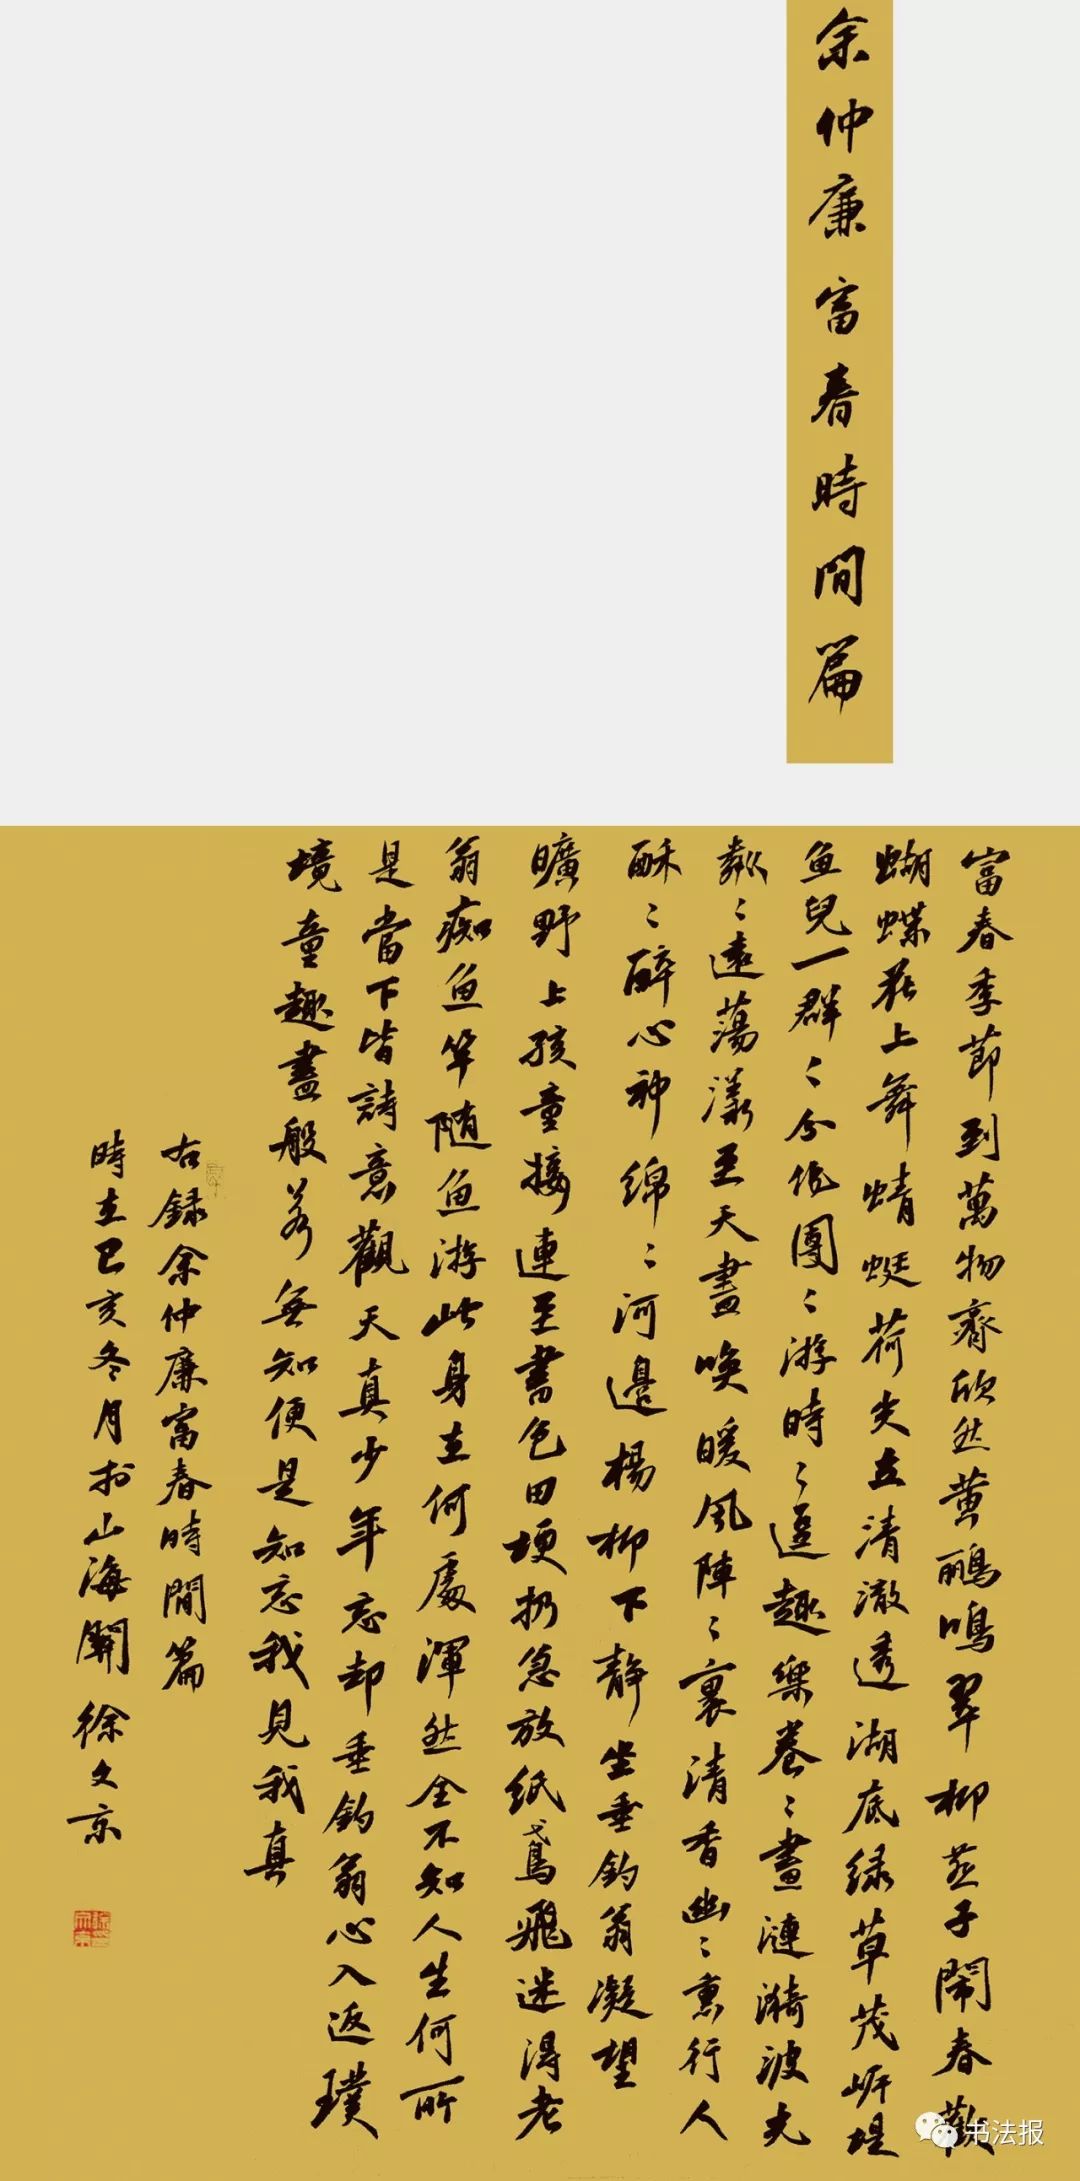 余仲廉富春時間篇
富春季節到萬物齊欣然黄鸝鳴翠柳燕子鬧春歡
蝴蝶花上舞蜻蜓荷尖立清澈透湖底緑草茂岍堤
魚兒一群〻分作團〻游時〻逗趣樂卷〻畫漣漪波光
粼〻遠蕩漾至天盡唤暖風陣〻裏清香幽〻熏行人
酥〻醉心神綿〻河邊楊柳下静坐垂釣翁凝望
曠野上孩童接連至書包田埂扔急放紙鳶飛迷得老
翁痴魚竿隨魚游此身立何處渾然全不知人生何所
是當下皆詩意觀天真少年忘却垂釣翁心入返璞
境童趣盡般若無知便是知忘我見我真
右録余仲廉富春時間篇
時在己亥冬月於山海關徐文京
书法报